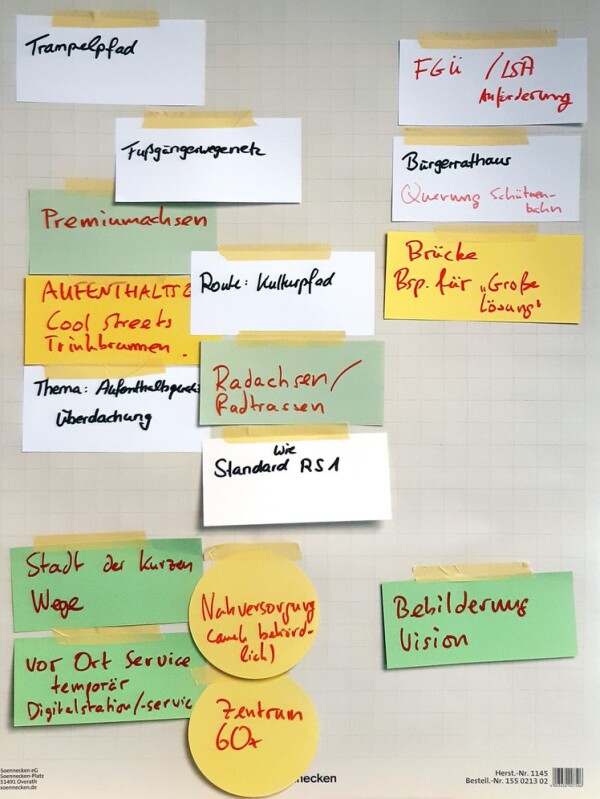 Trampelpfad
FGÜ / LSA
Anforderung
Fußgängerwegenetz
Bürgerrathaus
Querung Schützen-
bahn
Premiumachsen
Brücke
Bsp. für „Große
Lösung"
Route: Kulturpfad
Cool Streets
Trinkbrunnen.
Radachsen/
Radtrassen
Thema:
Überdachung
wie
Standard RS1
Stadt der kurzen
Wege
Nahversorgung
(auch behörd-
lich)
Bebilderung
Vision
vor Ort Service
temporär
Digitalstation/-servic
Zentrum
60+
Soennecken eG
Soennecken-Platz
51491 Overath
soennecken.de
nnecken
Herst.-Nr. 1145
Bestell.-Nr. 155 0213 02